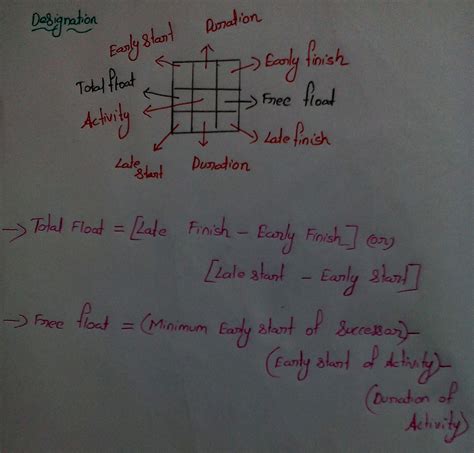 Designation
Duration
Early Start
Early finish
Total float
Free float
Activity
Late finish
Late Start
Duration
→ Total Float = [Late Finish - Early Finish] (or)
[Late start - Early Start]
→ Free float = (Minimum Early start of Successor) -
(Early start of Activity) -
(Duration of
Activity)